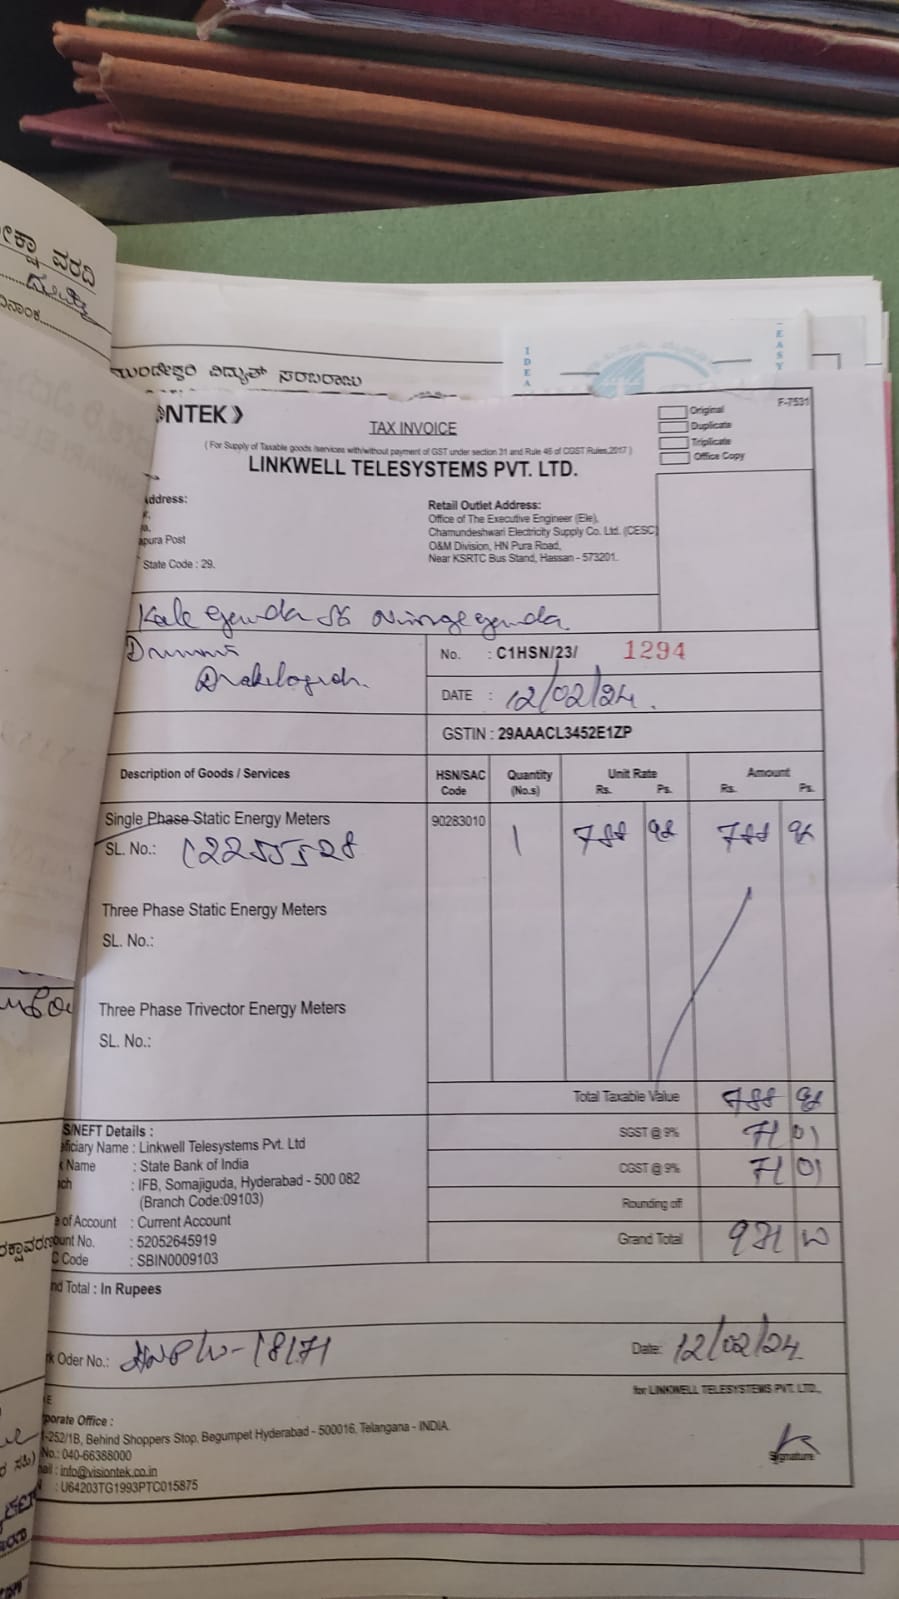 ವರದಿ
ವಿದ್ಯುತ್ ಸರಬರಾಜು
IDEA
EASY
NTEK
F-7531
TAX INVOICE
Original
Duplicate
Triplicate
Office Copy
( For Supply of Taxable goods /services with/without payment of GST under section 31 and Rule 46 of CGST Rules,2017 )
LINKWELL TELESYSTEMS PVT. LTD.
ddress:
apura Post
State Code : 29.
Retail Outlet Address:
Office of The Executive Engineer (Ele),
Chamundeshwari Electricity Supply Co. Ltd. (CESC)
O&M Division, HN Pura Road,
Near KSRTC Bus Stand, Hassan - 573201.
No. : C1HSN/23/ 1294
DATE : 12/02/24.
GSTIN : 29AAACL3452E1ZP
Description of Goods / Services HSN/SAC Code Quantity (No.s) Unit Rate Rs. Ps. Amount Rs. Ps.
Single Phase Static Energy Meters 90283010 1 788 98 788 98
SL. No.:
Three Phase Static Energy Meters
SL. No.:
Three Phase Trivector Energy Meters
SL. No.:
Total Taxable Value 788 98
SGST @ 9% 71 01
CGST @ 9% 71 01
Rounding off
Grand Total 931 00
S/NEFT Details :
ficiary Name : Linkwell Telesystems Pvt. Ltd
k Name : State Bank of India
ch : IFB, Somajiguda, Hyderabad - 500 082
(Branch Code:09103)
e of Account : Current Account
ount No. : 52052645919
C Code : SBIN0009103
nd Total : In Rupees
k Oder No.:
Date: 12/02/24
for LINKWELL TELESYSTEMS PVT. LTD.,
Signature
porate Office :
-252/1B, Behind Shoppers Stop, Begumpet Hyderabad - 500016, Telangana - INDIA.
No.: 040-66388000
ail : info@visiontek.co.in
: U64203TG1993PTC015875